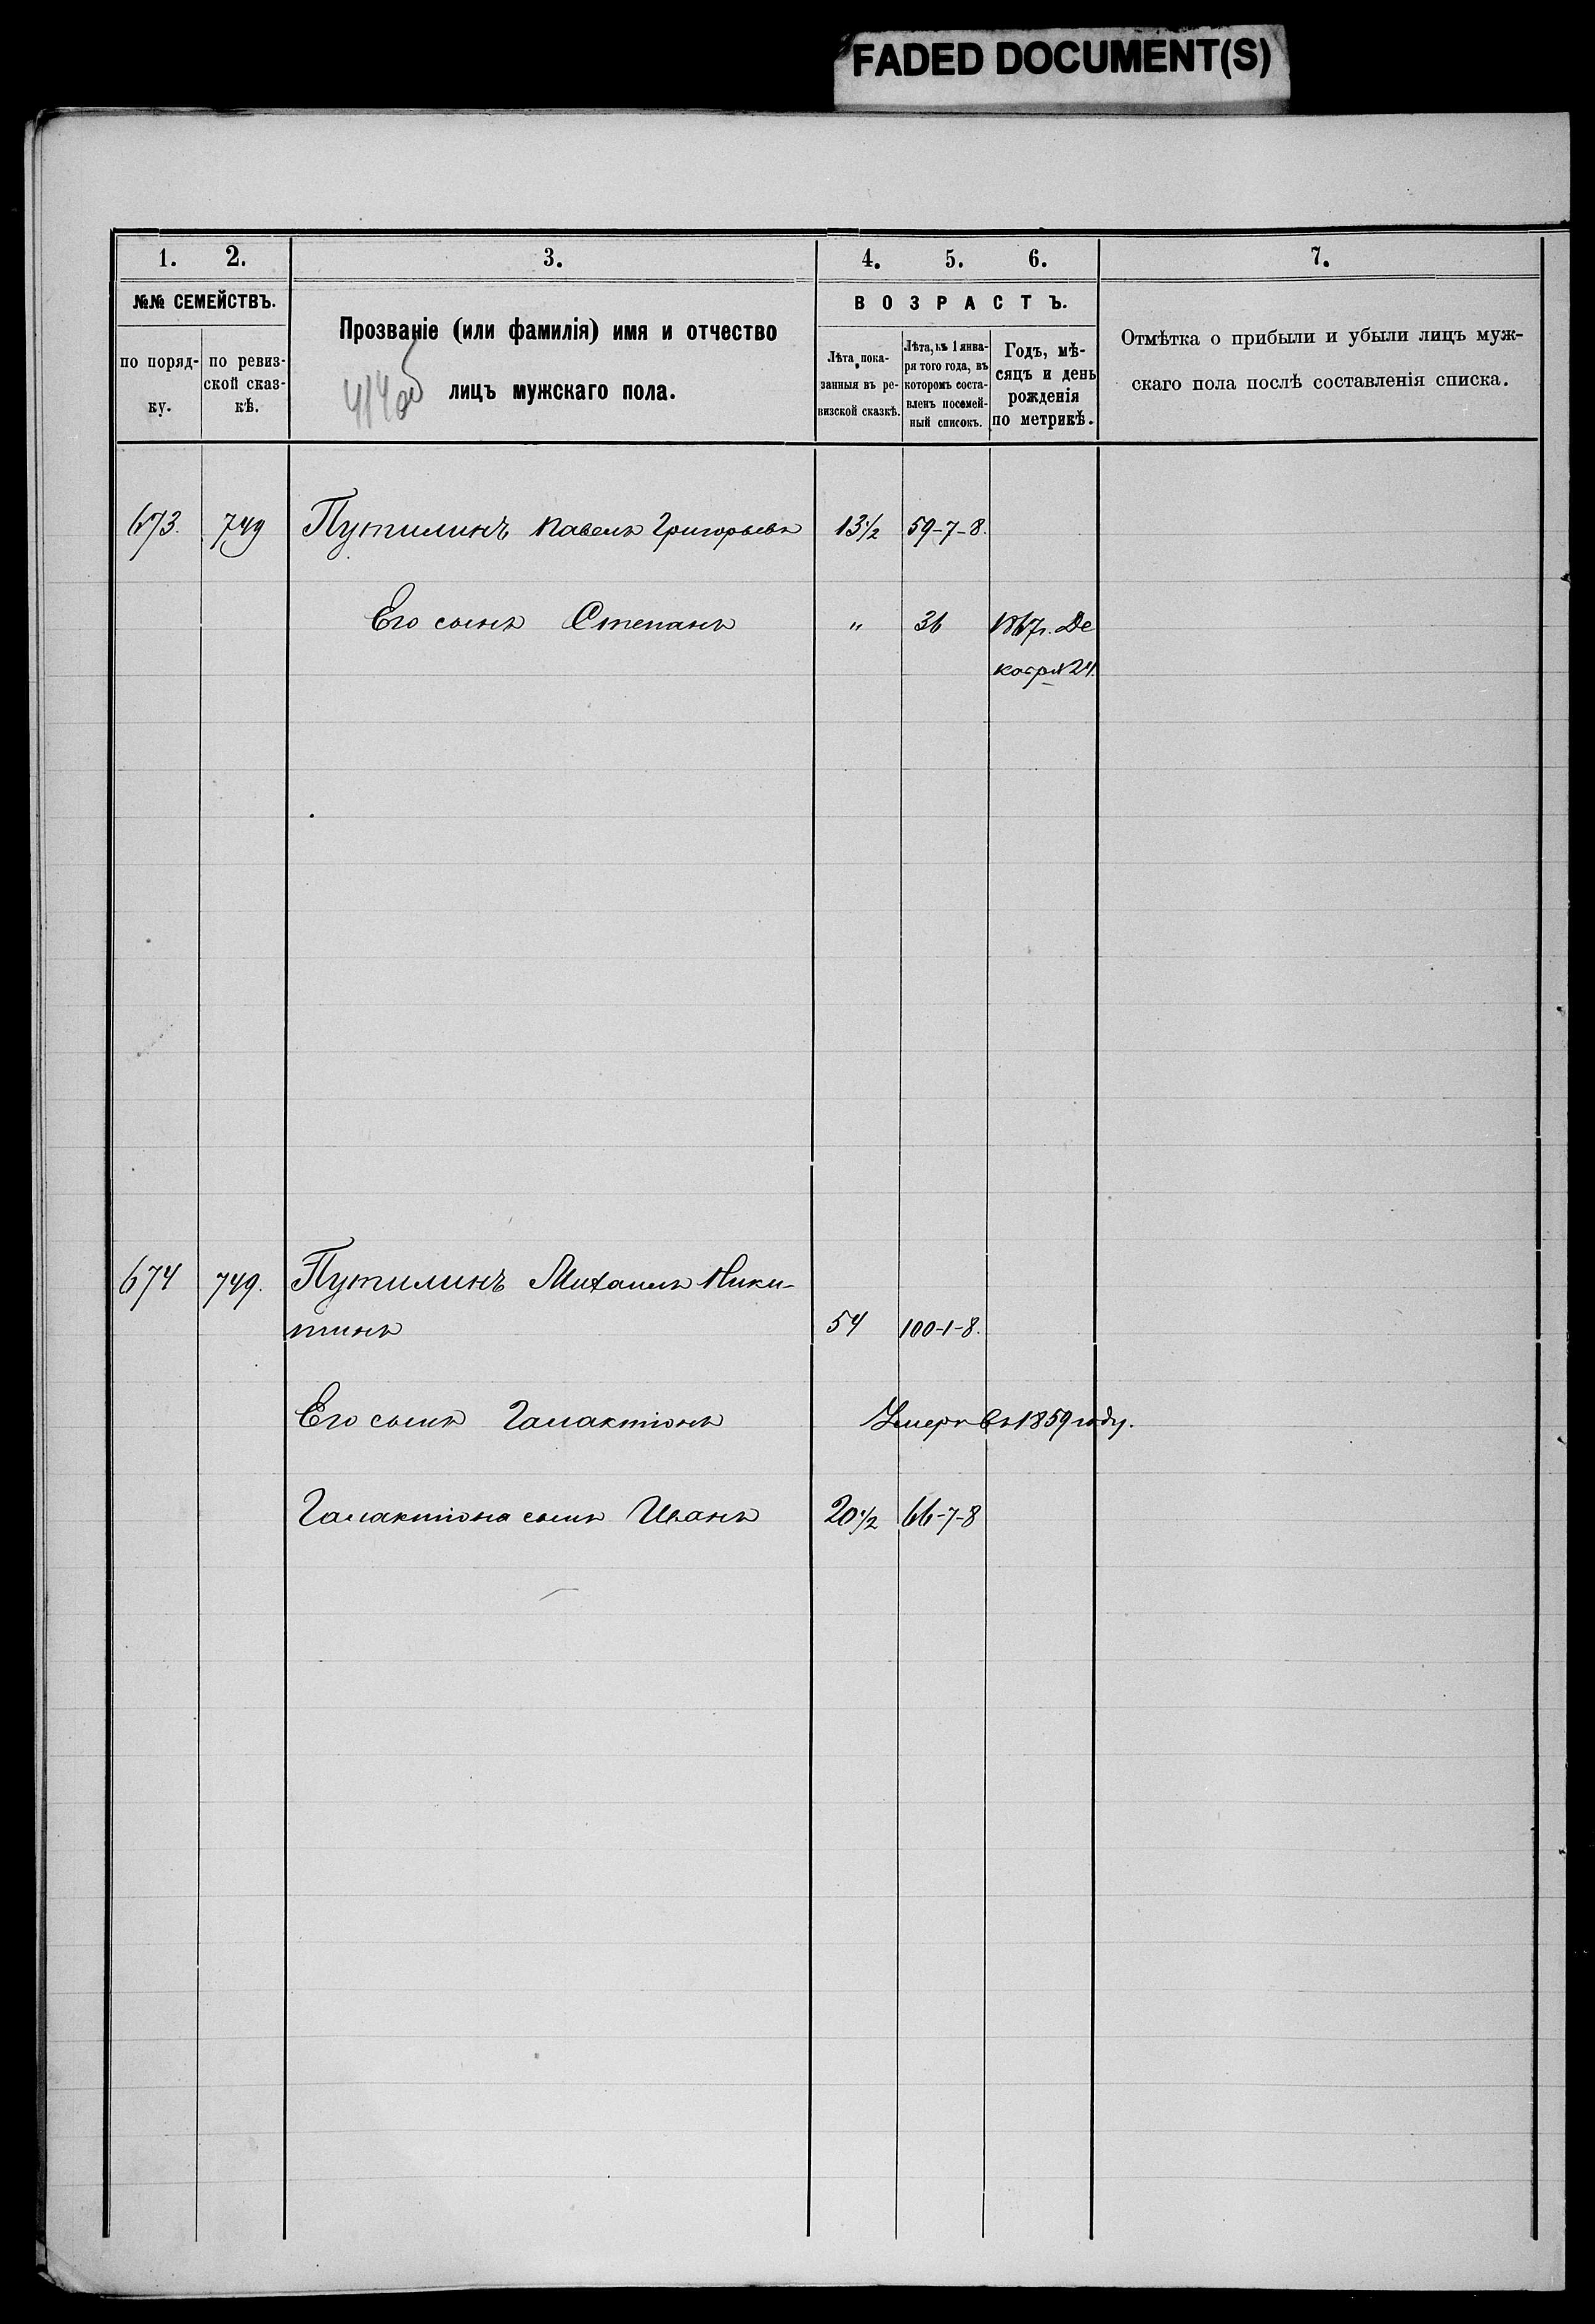 FADED DOCUMENT(S)
1. 2. 3. 4. 5. 6. 7.
№№ СЕМЕЙСТВЪ.
по поряд-
ку.
по ревиз-
ской сказ-
кѣ.
Прозваніе (или фамилія) имя и отчество
лицъ мужскаго пола.
414 об
ВОЗРАСТЪ.
Лѣта, пока-
занныя въ ре-
визской сказкѣ.
Лѣта, къ 1 янва-
ря того года, въ
которомъ соста-
вленъ посемей-
ный списокъ.
Годъ, мѣ-
сяцъ и день
рожденія
по метрикѣ.
Отмѣтка о прибыли и убыли лицъ муж-
скаго пола послѣ составленія списка.
673. 749 Путилинъ Павелъ Григорьевъ 13½ 59-7-8.
Его сынъ Степанъ " 36 1867г. Де
кабря 24.
674 749. Путилинъ Михаилъ Ники-
тинъ 54 100-1-8.
Его сынъ Галактіонъ Умеръ въ 1859 году.
Галактіона сынъ Иванъ 20½ 66-7-8